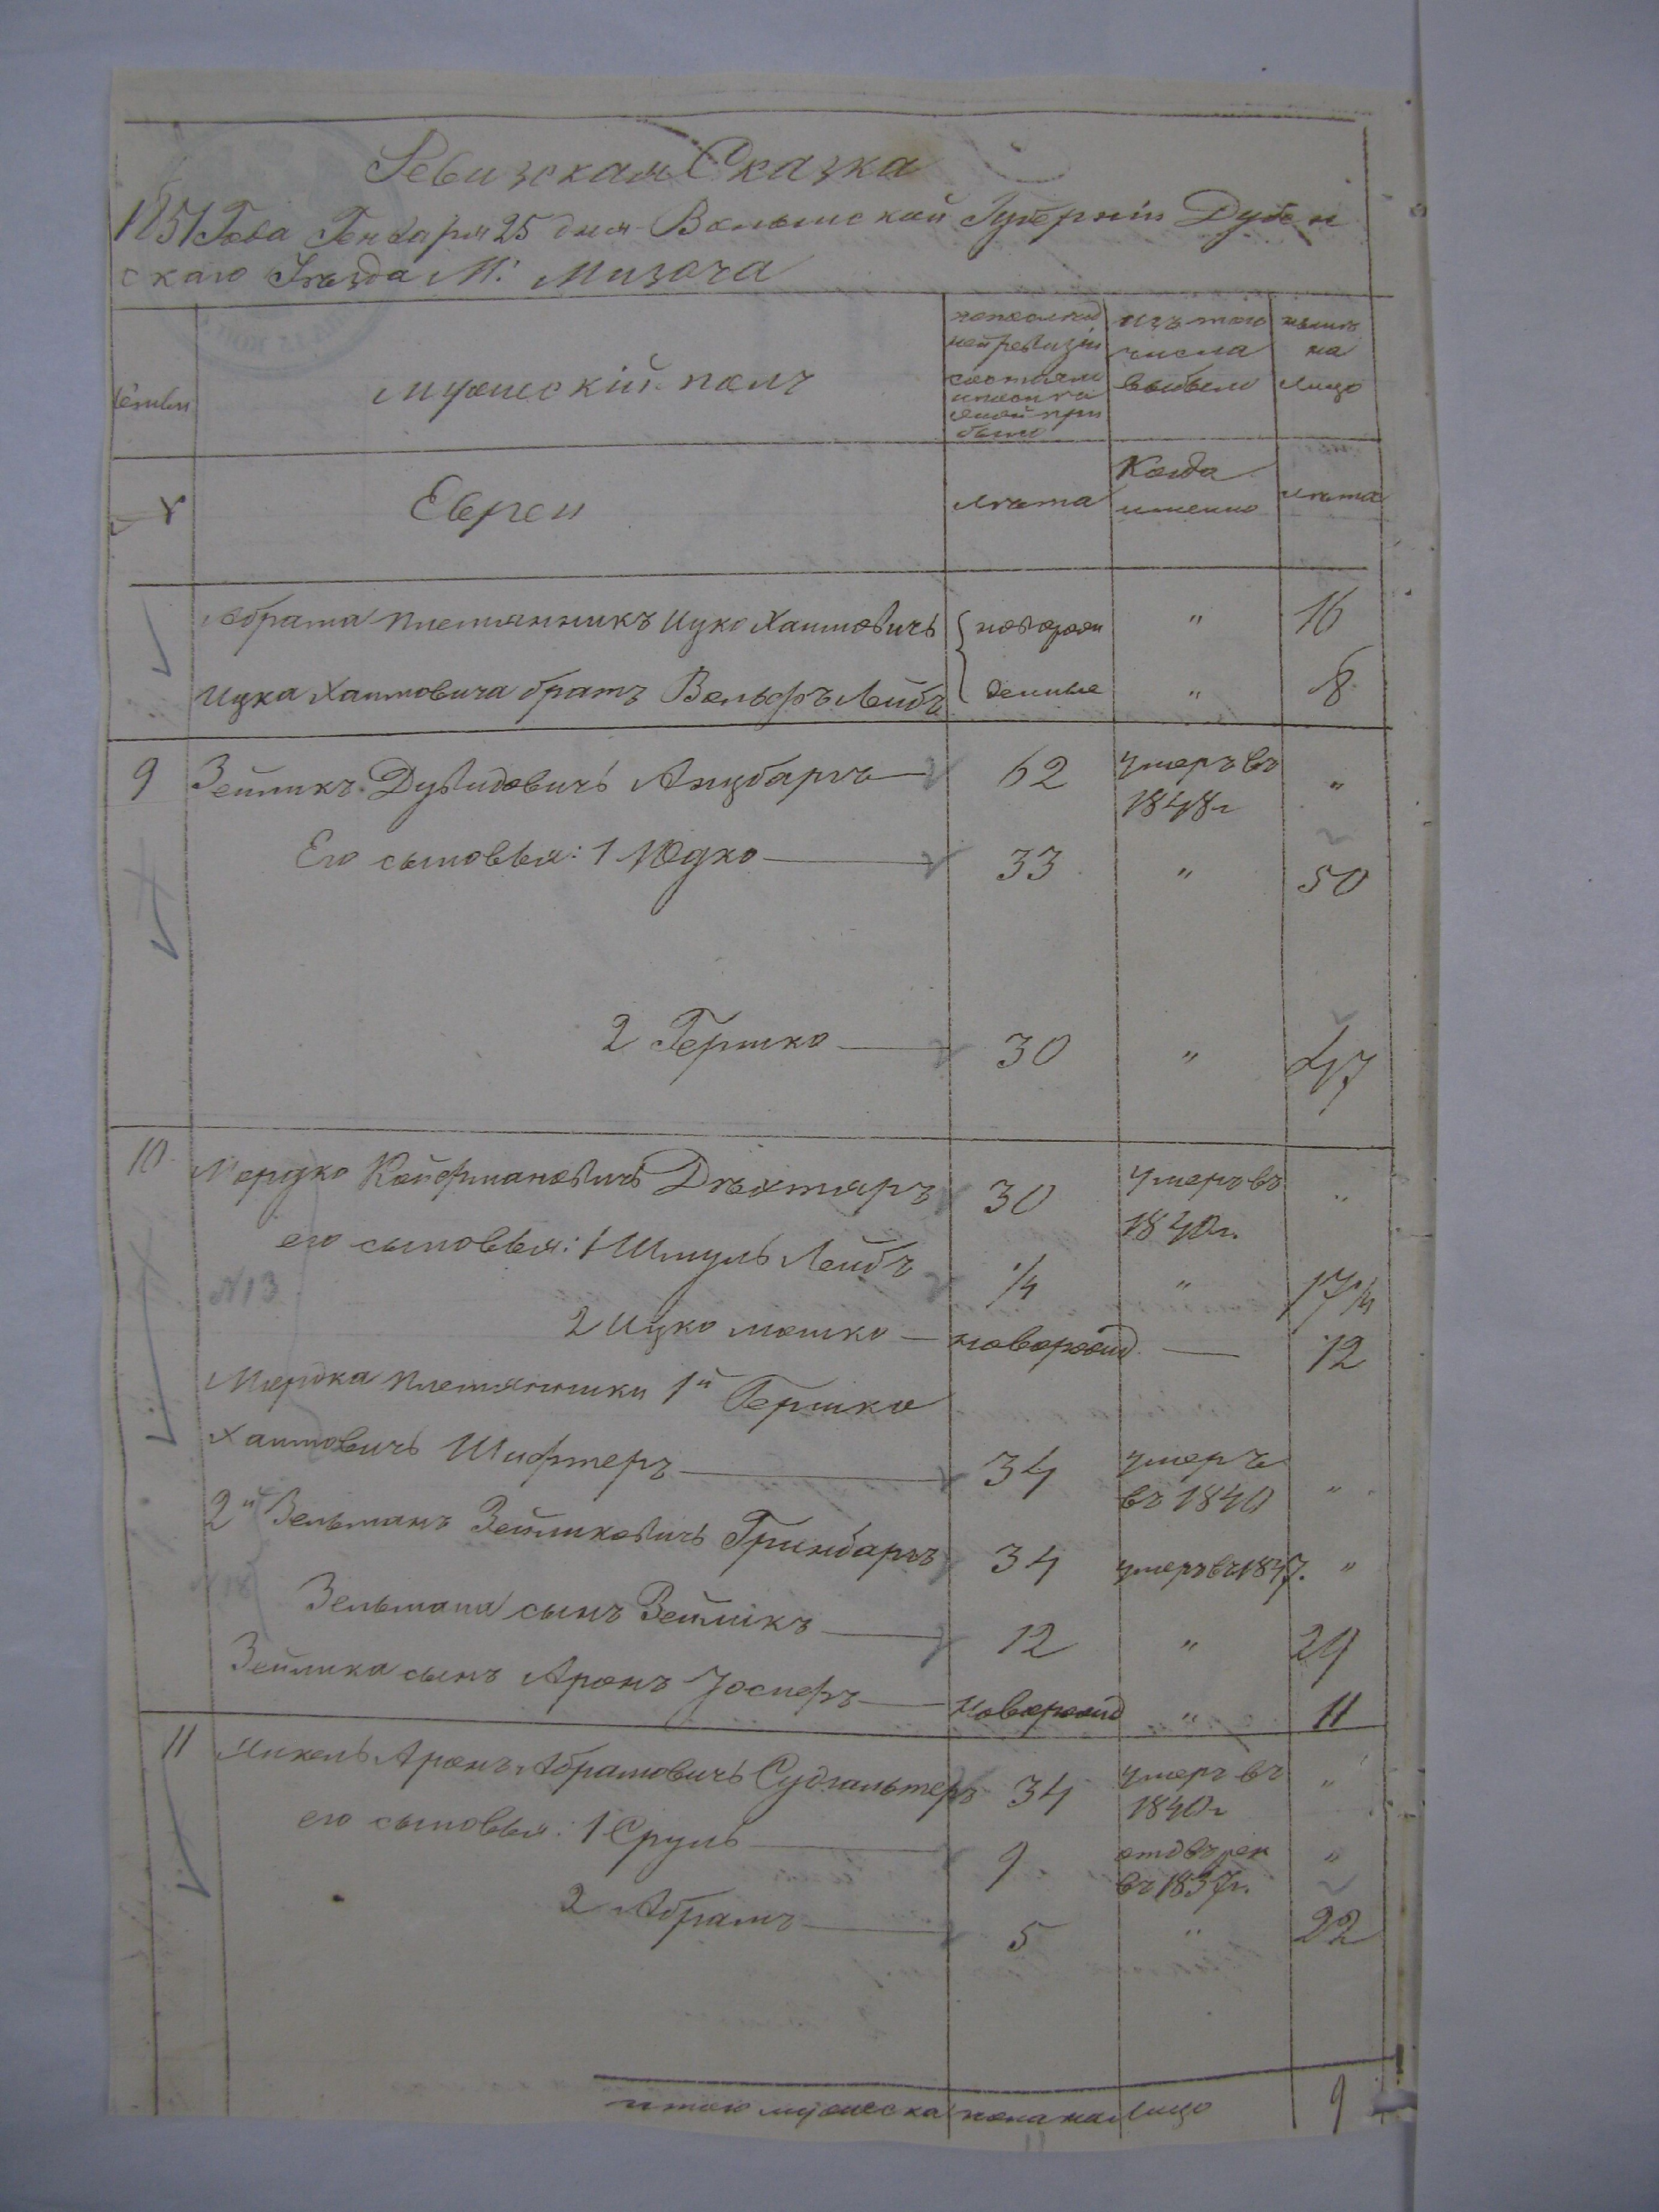 Ревизская Сказка
1851 Года Генваря 25 дня Волынской Губерніи Дубен
скаго Уѣзда М. Мизоча
Семьи
мужескій полъ
попослѣд
ней ревизіи
состояло
и послѣ
оной при
было
изъ того
числа
выбыло
нынѣ
на
лицо
Евреи
лѣта
Когда
именно
лѣта
Абрама племянникъ Ицко Хаимовичь { новорож " 16
Ицка Хаимовича братъ Вольфъ Лейбъ денные " 8
9 Зейликъ Дувидовичь 62 умеръ въ "
1848г
Его сыновья: 1 Юдко 33 " 50
2 Гершко 30 " 47
10 Мордко Койфмановичь Дѣхтяръ 30 умеръ въ "
1840г.
его сыновья: 1 Шмуль Лейбъ 1/4 " 17 1/4
N 13
2 Ицко Мошко — новорожд. — 12
Мордка племянники 1й Гершко
Хаимовичь Шифтеръ 34 умеръ "
въ 1840
2й Зельманъ Зейликовичь Гринбаргъ 34 умеръ въ 1847. "
Зельмана сынъ Зейликъ 12 " 29
Зейлика сынъ Аронъ Іосифъ новорожд " 11
11 Аронъ Абрамовичь Судгальтеръ 34 умеръ въ "
1840г
его сыновья: 1 Сруль 9 отд въ рек "
въ 1837г.
2 Абрамъ 5 " 22
итого мужеска пола на лицо 9